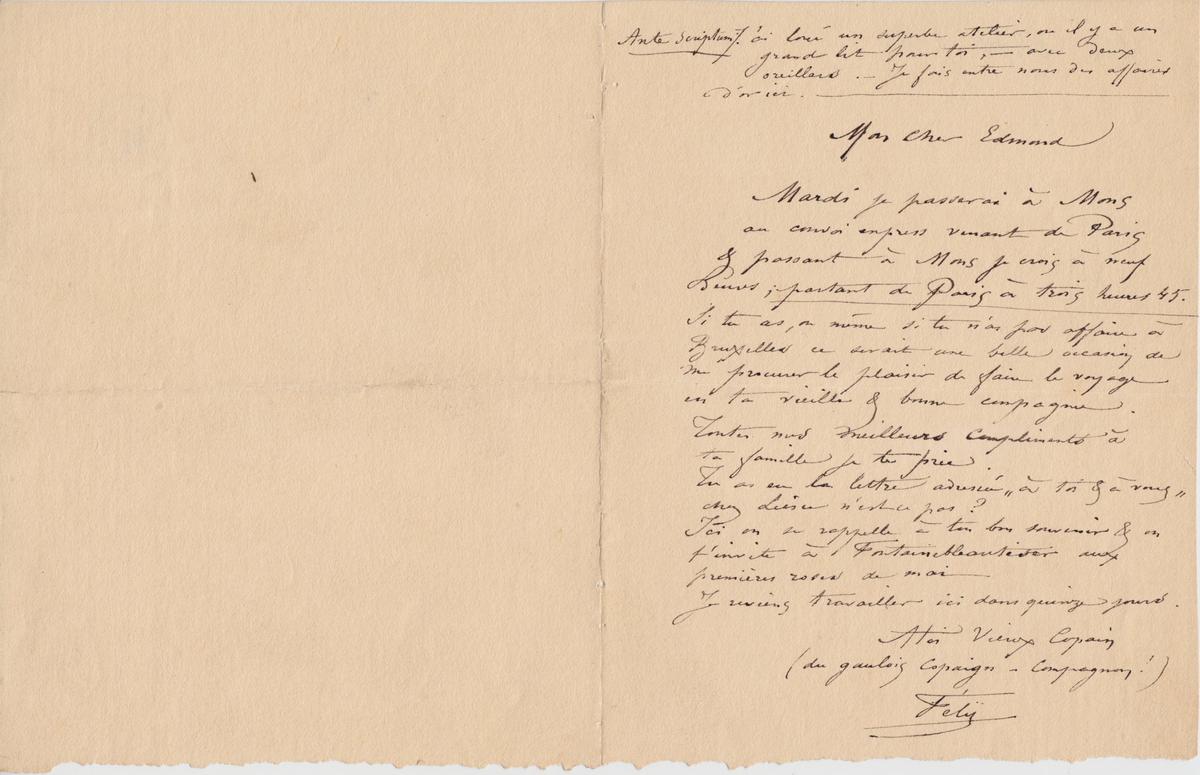 Ante Scriptum J'ai loué un superbe atelier, ou il y a un
grand lit pour toi, — avec deux
oreillers. — Je fais entre nous des affaires
d'or ici.
Mon cher Edmond
Mardi je passerai à Mons
au convoi express venant de Paris
& passant à Mons je crois à neuf
heures, partant de Paris à trois heures 45.
Si tu as, ou même si tu n'as pas affaire à
Bruxelles ce serait une belle occasion de
me procurer le plaisir de faire le voyage
en ta vieille & bonne compagnie.
Toutes mes meilleurs compliments à
ta famille je te prie.
Tu as eu la lettre adressée „à toi & à vous"
chez n'est-ce pas?
Ici on se rappelle à ton bon souvenir & on
t'invite à Fontainebleautiser aux
premières roses de mai —
Je reviens travailler ici dans quinze jours.
A toi Vieux Copain
(du gaulois Copaigns – Compagnon!)
Fély